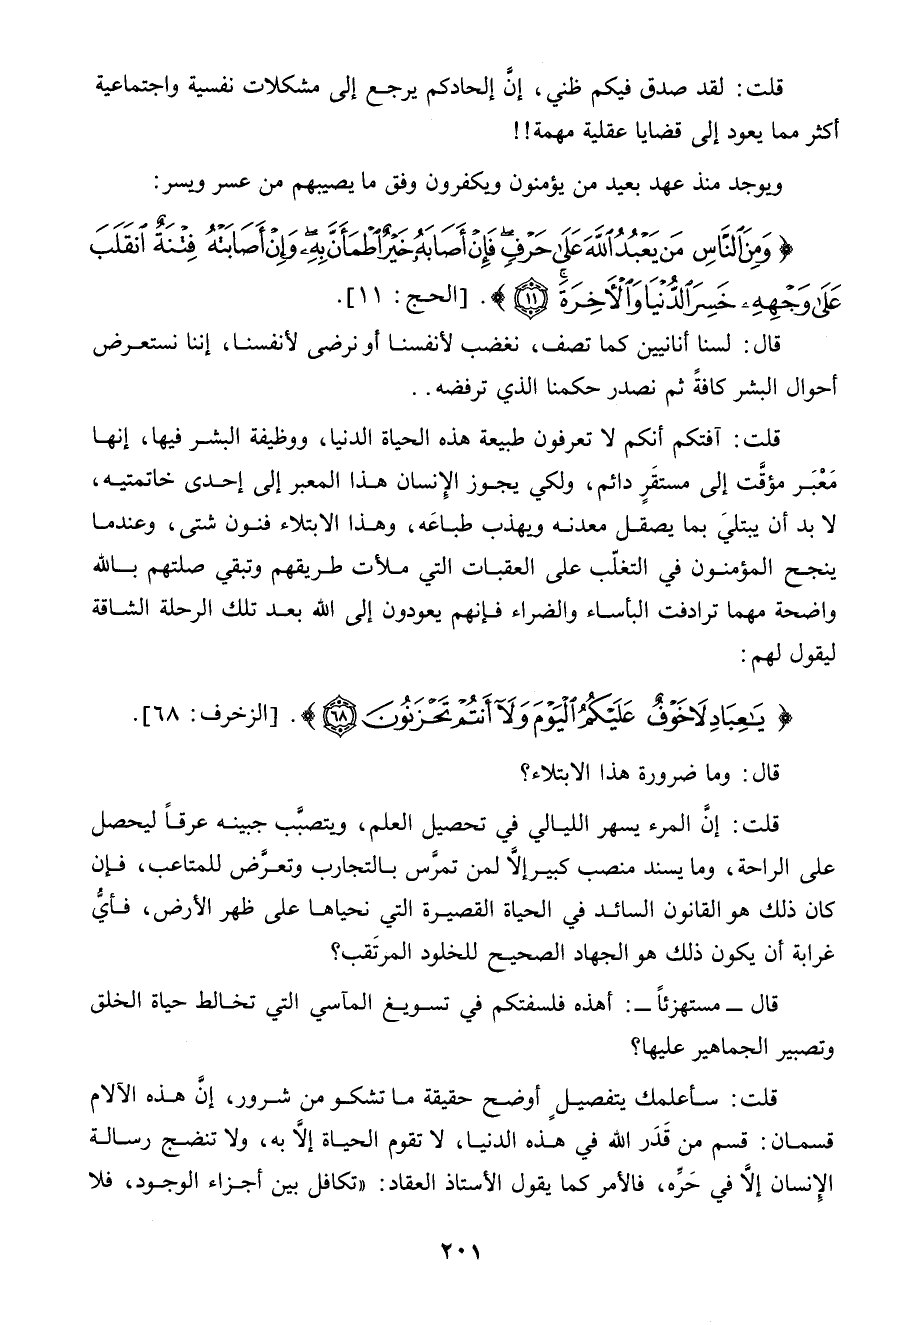 قلت: لقد صدق فيكم ظني، إنَّ إلحادكم يرجع إلى مشكلات نفسية واجتماعية
أكثر مما يعود إلى قضايا عقلية مهمة!!
ويوجد منذ عهد بعيد من يؤمنون ويكفرون وفق ما يصيبهم من عسر ويسر:
﴿ وَمِنَ ٱلنَّاسِ مَن يَعْبُدُ ٱللَّهَ عَلَىٰ حَرْفٍۖ فَإِنْ أَصَابَهُۥ خَيْرٌ ٱطْمَأَنَّ بِهِۦۖ وَإِنْ أَصَابَتْهُ فِتْنَةٌ ٱنقَلَبَ
عَلَىٰ وَجْهِهِۦ خَسِرَ ٱلدُّنْيَا وَٱلْأَخِرَةَۚ ﴿١١﴾ ﴾. [الحج: ١١].
قال: لسنا أنانيين كما تصف، نغضب لأنفسنا أو نرضى لأنفسنا، إننا نستعرض
أحوال البشر كافةً ثم نصدر حكمنا الذي ترفضه..
قلت: آفتكم أنكم لا تعرفون طبيعة هذه الحياة الدنيا، ووظيفة البشر فيها، إنها
مَعْبَر مؤقَّت إلى مستقَرٍ دائم، ولكي يجوز الإنسان هذا المعبر إلى إحدى خاتمتيه،
لا بد أن يبتليَ بما يصقل معدنه ويهذب طباعَه، وهذا الابتلاء فنون شتى، وعندما
ينجح المؤمنون في التغلّب على العقبات التي ملأت طريقهم وتبقي صلتهم بالله
واضحة مهما ترادفت البأساء والضراء فإنهم يعودون إلى الله بعد تلك الرحلة الشاقة
ليقول لهم:
﴿ يَٰعِبَادِ لَا خَوْفٌ عَلَيْكُمُ ٱلْيَوْمَ وَلَآ أَنتُمْ تَحْزَنُونَ ﴿٦٨﴾ ﴾. [الزخرف: ٦٨].
قال: وما ضرورة هذا الابتلاء؟
قلت: إنَّ المرء يسهر الليالي في تحصيل العلم، ويتصبَّب جبينه عرقاً ليحصل
على الراحة، وما يسند منصب كبير إلَّا لمن تمرَّس بالتجارب وتعرَّض للمتاعب، فإن
كان ذلك هو القانون السائد في الحياة القصيرة التي نحياها على ظهر الأرض، فأيُّ
غرابة أن يكون ذلك هو الجهاد الصحيح للخلود المرتَقب؟
قال ــ مستهزئاً ــ: أهذه فلسفتكم في تسويغ المآسي التي تخالط حياة الخلق
وتصبير الجماهير عليها؟
قلت: سأعلمك يتفصيلٍ أوضح حقيقة ما تشكو من شرور، إنَّ هذه الآلام
قسمان: قسم من قَدَر الله في هذه الدنيا، لا تقوم الحياة إلَّا به، ولا تنضج رسالة
الإنسان إلَّا في حَرِّه، فالأمر كما يقول الأستاذ العقاد: «تكافل بين أجزاء الوجود، فلا
٢٠١